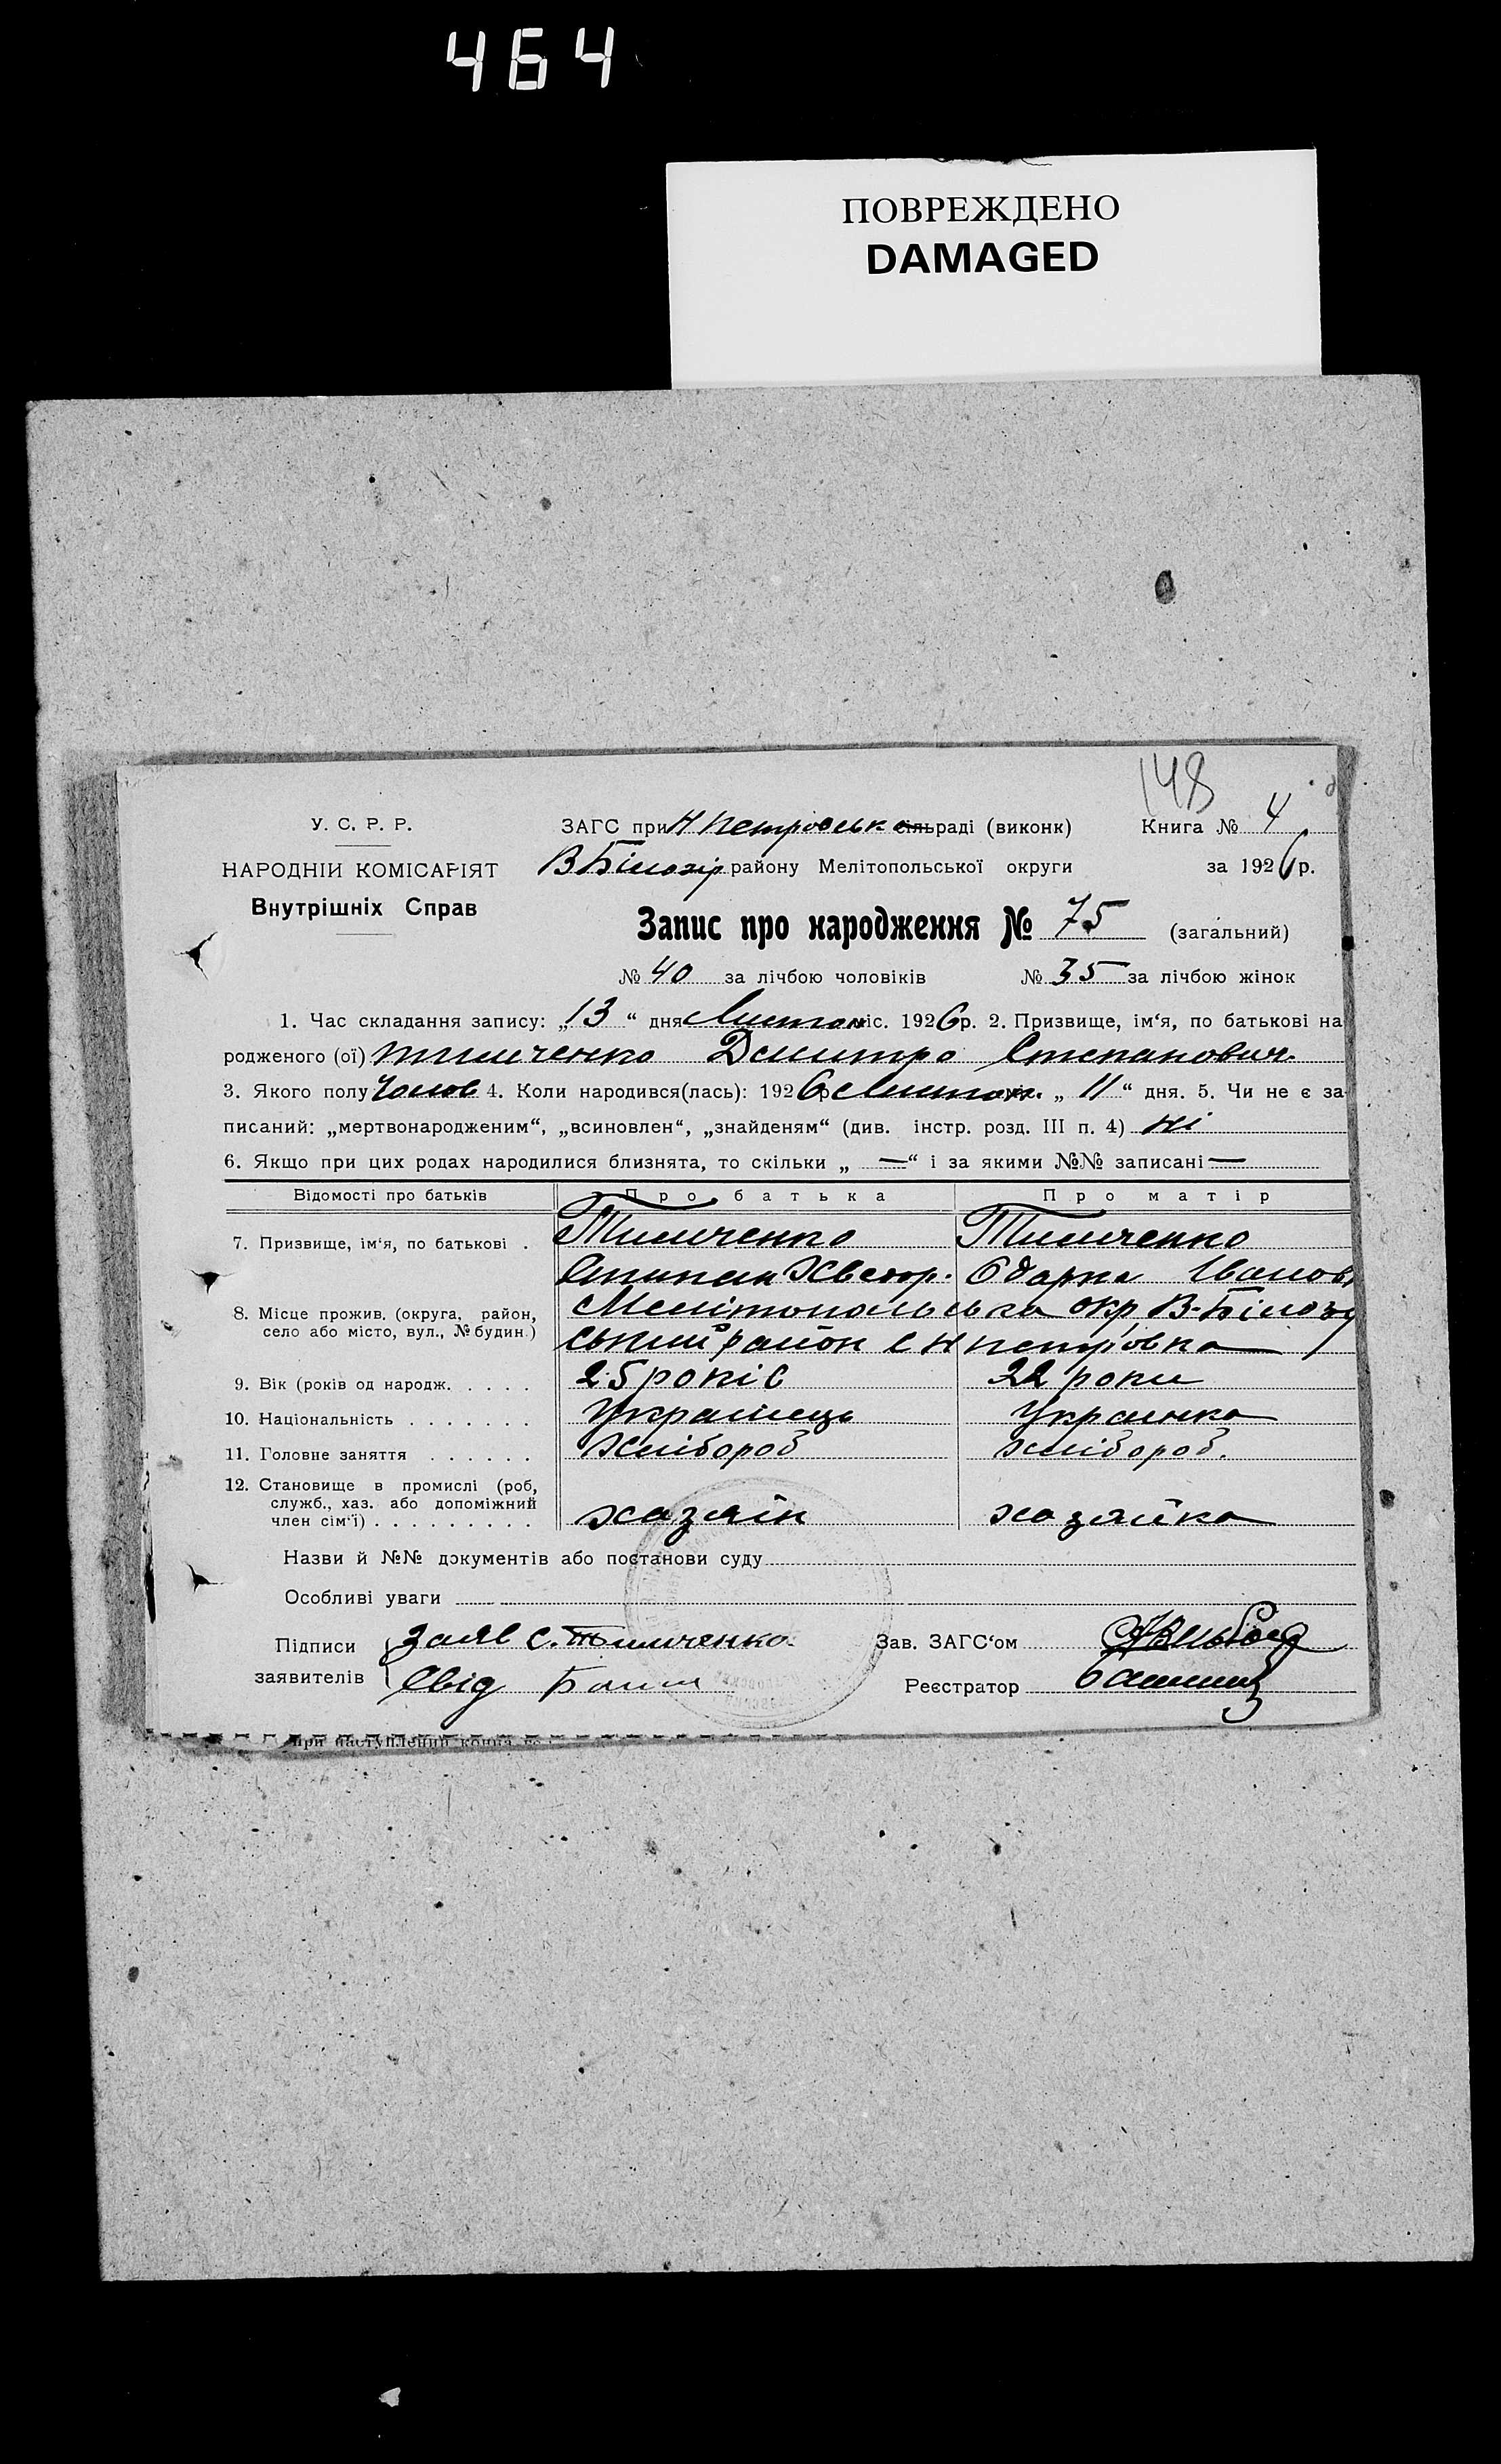 464
ПОВРЕЖДЕНО
DAMAGED
148
У. С. Р. Р.
ЗАГС при Н Петровськ сільраді (виконк)
Книга № 4
НАРОДНІЙ КОМІСАРІЯТ
В Білозір району Мелітопольської округи
за 1926 р.
Внутрішніх Справ
Запис про народження № 75 (загальний)
№ 40 за лічбою чоловіків № 35 за лічбою жінок
1. Час складання запису: „13“ дня Листоп міс. 1926 р. 2. Призвище, ім‘я, по батькові на
родженого (ої) Тимченко Дмитро Степанович.
3. Якого полу Чолов 4. Коли народився(лась): 1926 р Листоп. „11“ дня. 5. Чи не є за-
писаний: „мертвонародженим“, „всиновлен“, „знайденям“ (див. інстр. розд. III п. 4) ні
6. Якщо при цих родах народилися близнята, то скільки „ — “ і за якими №№ записані —
Відомості про батьків Про батька Про матір
7. Призвище, ім‘я, по батькові . Тимченко Тимченко
Степан Хведор. Одарка Іванов
8. Місце прожив. (округа, район, село або місто, вул., № будин.) Мелітопольська окр В-Білозір
ський район с Н петровка
9. Вік (років од народж. . . . . 25 років 22 роки
10. Національність . . . . . . . Українець Українка
11. Головне заняття . . . . . . Хлібороб хлібороб.
12. Становище в промислі (роб,
служб., хаз. або допоміжний
член сім‘ї) . . . . . . . . . хазяїн хазяйка
Назви й №№ документів або постанови суду
Особливі уваги
Підписи заявителів
Заяв С. Тимченко
Зав. ЗАГС‘ом
Свід
Реєстратор
при наступлении конца